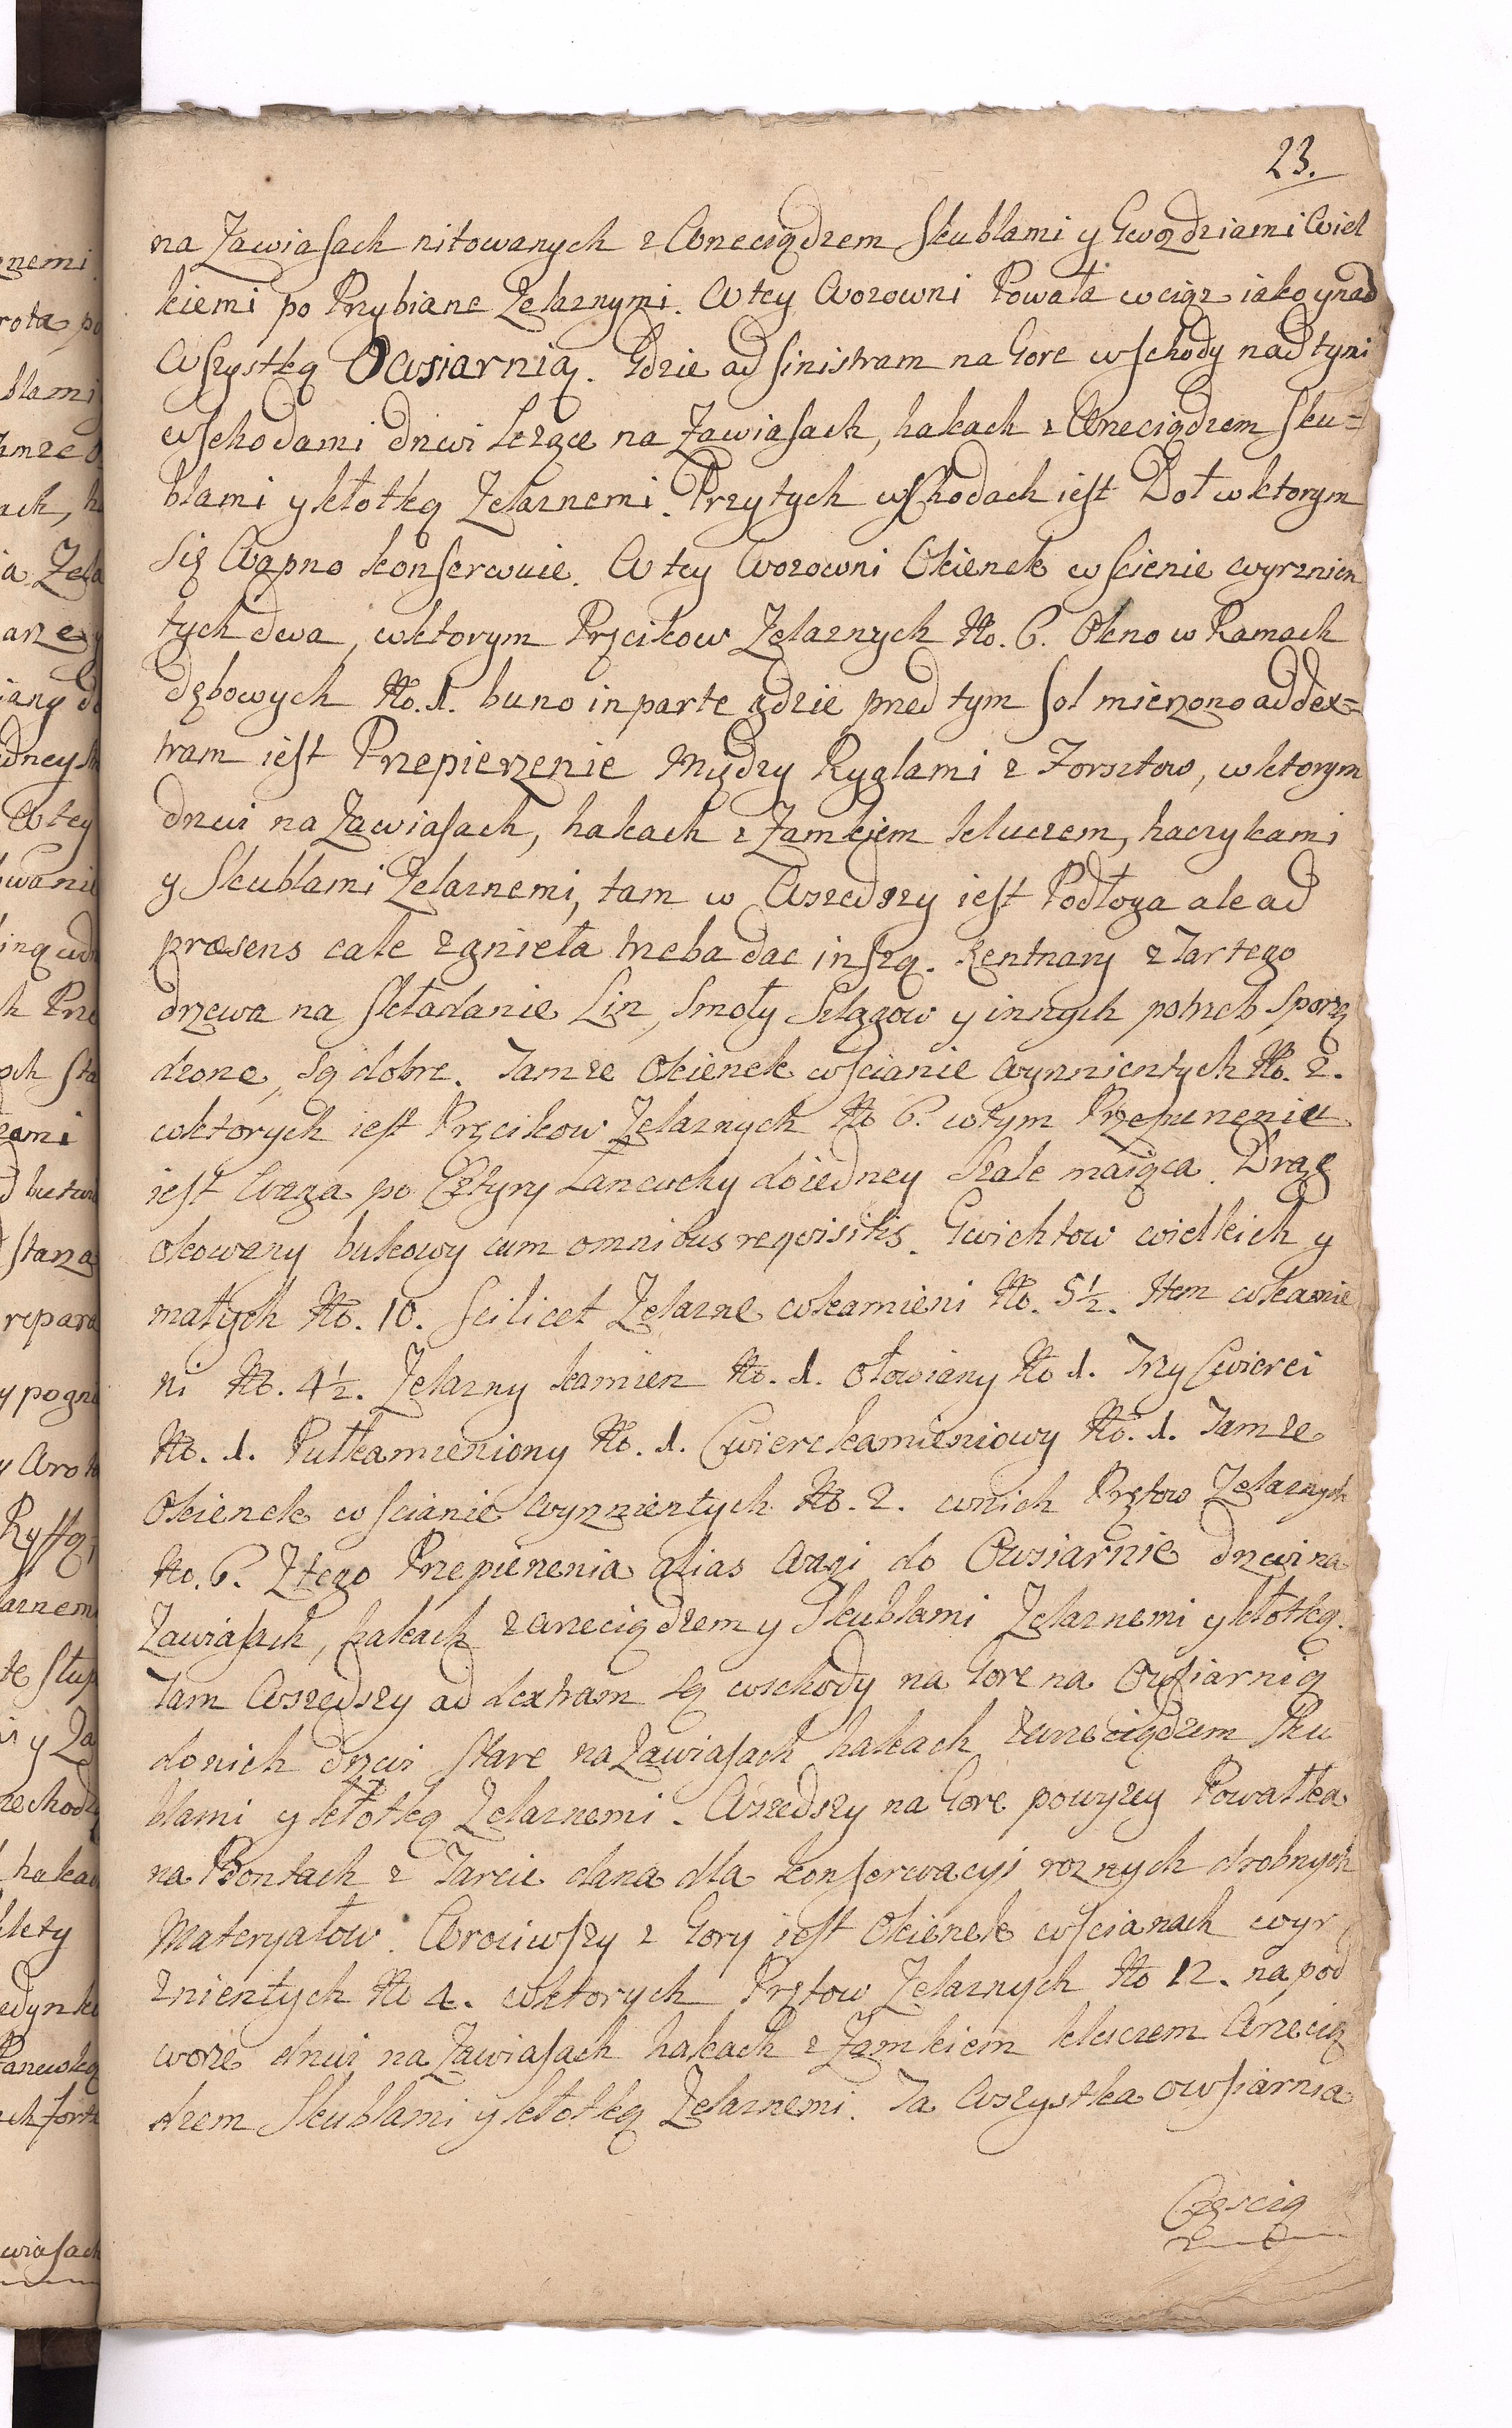 23.
na Zawiasach nitowanych z Wrzeciądzem Skublami y Gwozdziami Wiel
kiemi po Przybiane Zelaznymi. W tey Wozowni Powała wciąz iako y nad
Wszystką Owsiarnią. Gdzie ad sinistram na Gore wschody nad tymi
wschodami drzwi Lezące na Zawiasach, hakach z Wrzeciądzem Sku=
blami y kłotką Zelaznemi. Przytych wschodach iest Doł w ktorym
się Wapno konserwuie. W tey Wozowni Okienek w scienie wyrznien
tych dwa, w ktorym Pręcikow Zelaznych No. 6. Okno w Ramach
dębowych No. 1. huno in parte gdzie przed tym sol mierzono ad dex=
tram iest Przepierzenie Między Ryglami z Forsztow, w ktorym
drzwi na Zawiasach, hakach z Zamkiem kluczem, haczykami
y Skublami Zelaznemi, tam w Wszedszy iest Podłoga ale ad
præsens cale zgnieła trzeba dac inszą. Kentnary z Tartego
drzewa na składanie Lin, Smoły Szlagow y innych potrzeb sporzą
dzone, są dobre. Tamze Okienek w scianie Wyrznientych No. 2.
w ktorych iest Pręcikow Zelaznych No 6. w tym Przepierzeniu
iest Waga po Cztyry Łancuchy do iedney Szale maiąca. Drąg
okowany bukowy cum omnibus reqvisitis. Gwichtow wielkich y
małych No. 10. scilicet Zelazne w kamieni No. 5½. Item w kamie
ni No. 4½. Zelazny kamien No. 1. Ołowiany No 1. Trzy Cwierci
No. 1. Pułkamieniony No. 1. Cwierckamieniowy No. 1. Tamze
Okienek w scianie Wyrznientych No. 2. w nich Prętow Zelaznych
No. 6. Z tego Przepierzenia alias Wagi do Owsiarnie drzwi na
Zawiasach, hakach z wrzeciądzem y Skublami Zelaznemi y kłotką.
Tam Wszedszy ad dextram są wschody na Gore na Owsiarnią
do nich drzwi stare na Zawiasach hakach z wrzeciądzem Sku
blami y kłotką Zelaznemi. Wszedszy na Gore powyzey Powałka
na Bontach z Tarcic dana dla konserwacyi roznych drobnych
Materyałow. Wrociwszy z Gory iest Okienek w scianach wyr
znientych No 4. w ktorych Prętow Zelaznych No 12. na pod
worze drzwi na Zawiasach hakach z Zamkiem kluczem Wrzecią
dzem Skublami y kłotką Zelaznemi. Ta Wszystka owsiarnia
Częscią